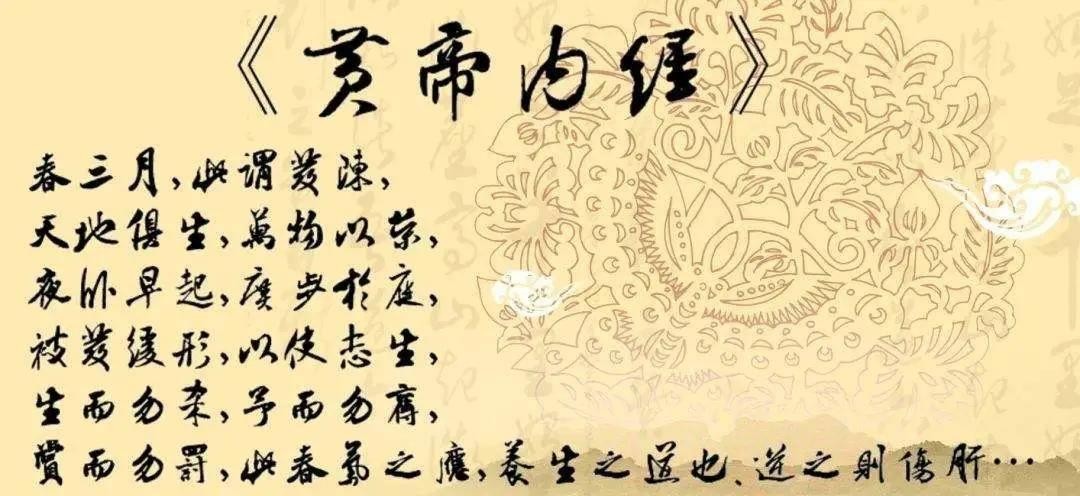 《黄帝内經》
春三月,此謂發陳,
天地俱生,萬物以榮,
夜卧早起,廣步於庭,
被發緩形,以使志生,
生而勿杀,予而勿奪,
賞而勿罰,此春氣之應,養生之道也、逆之則傷肝…